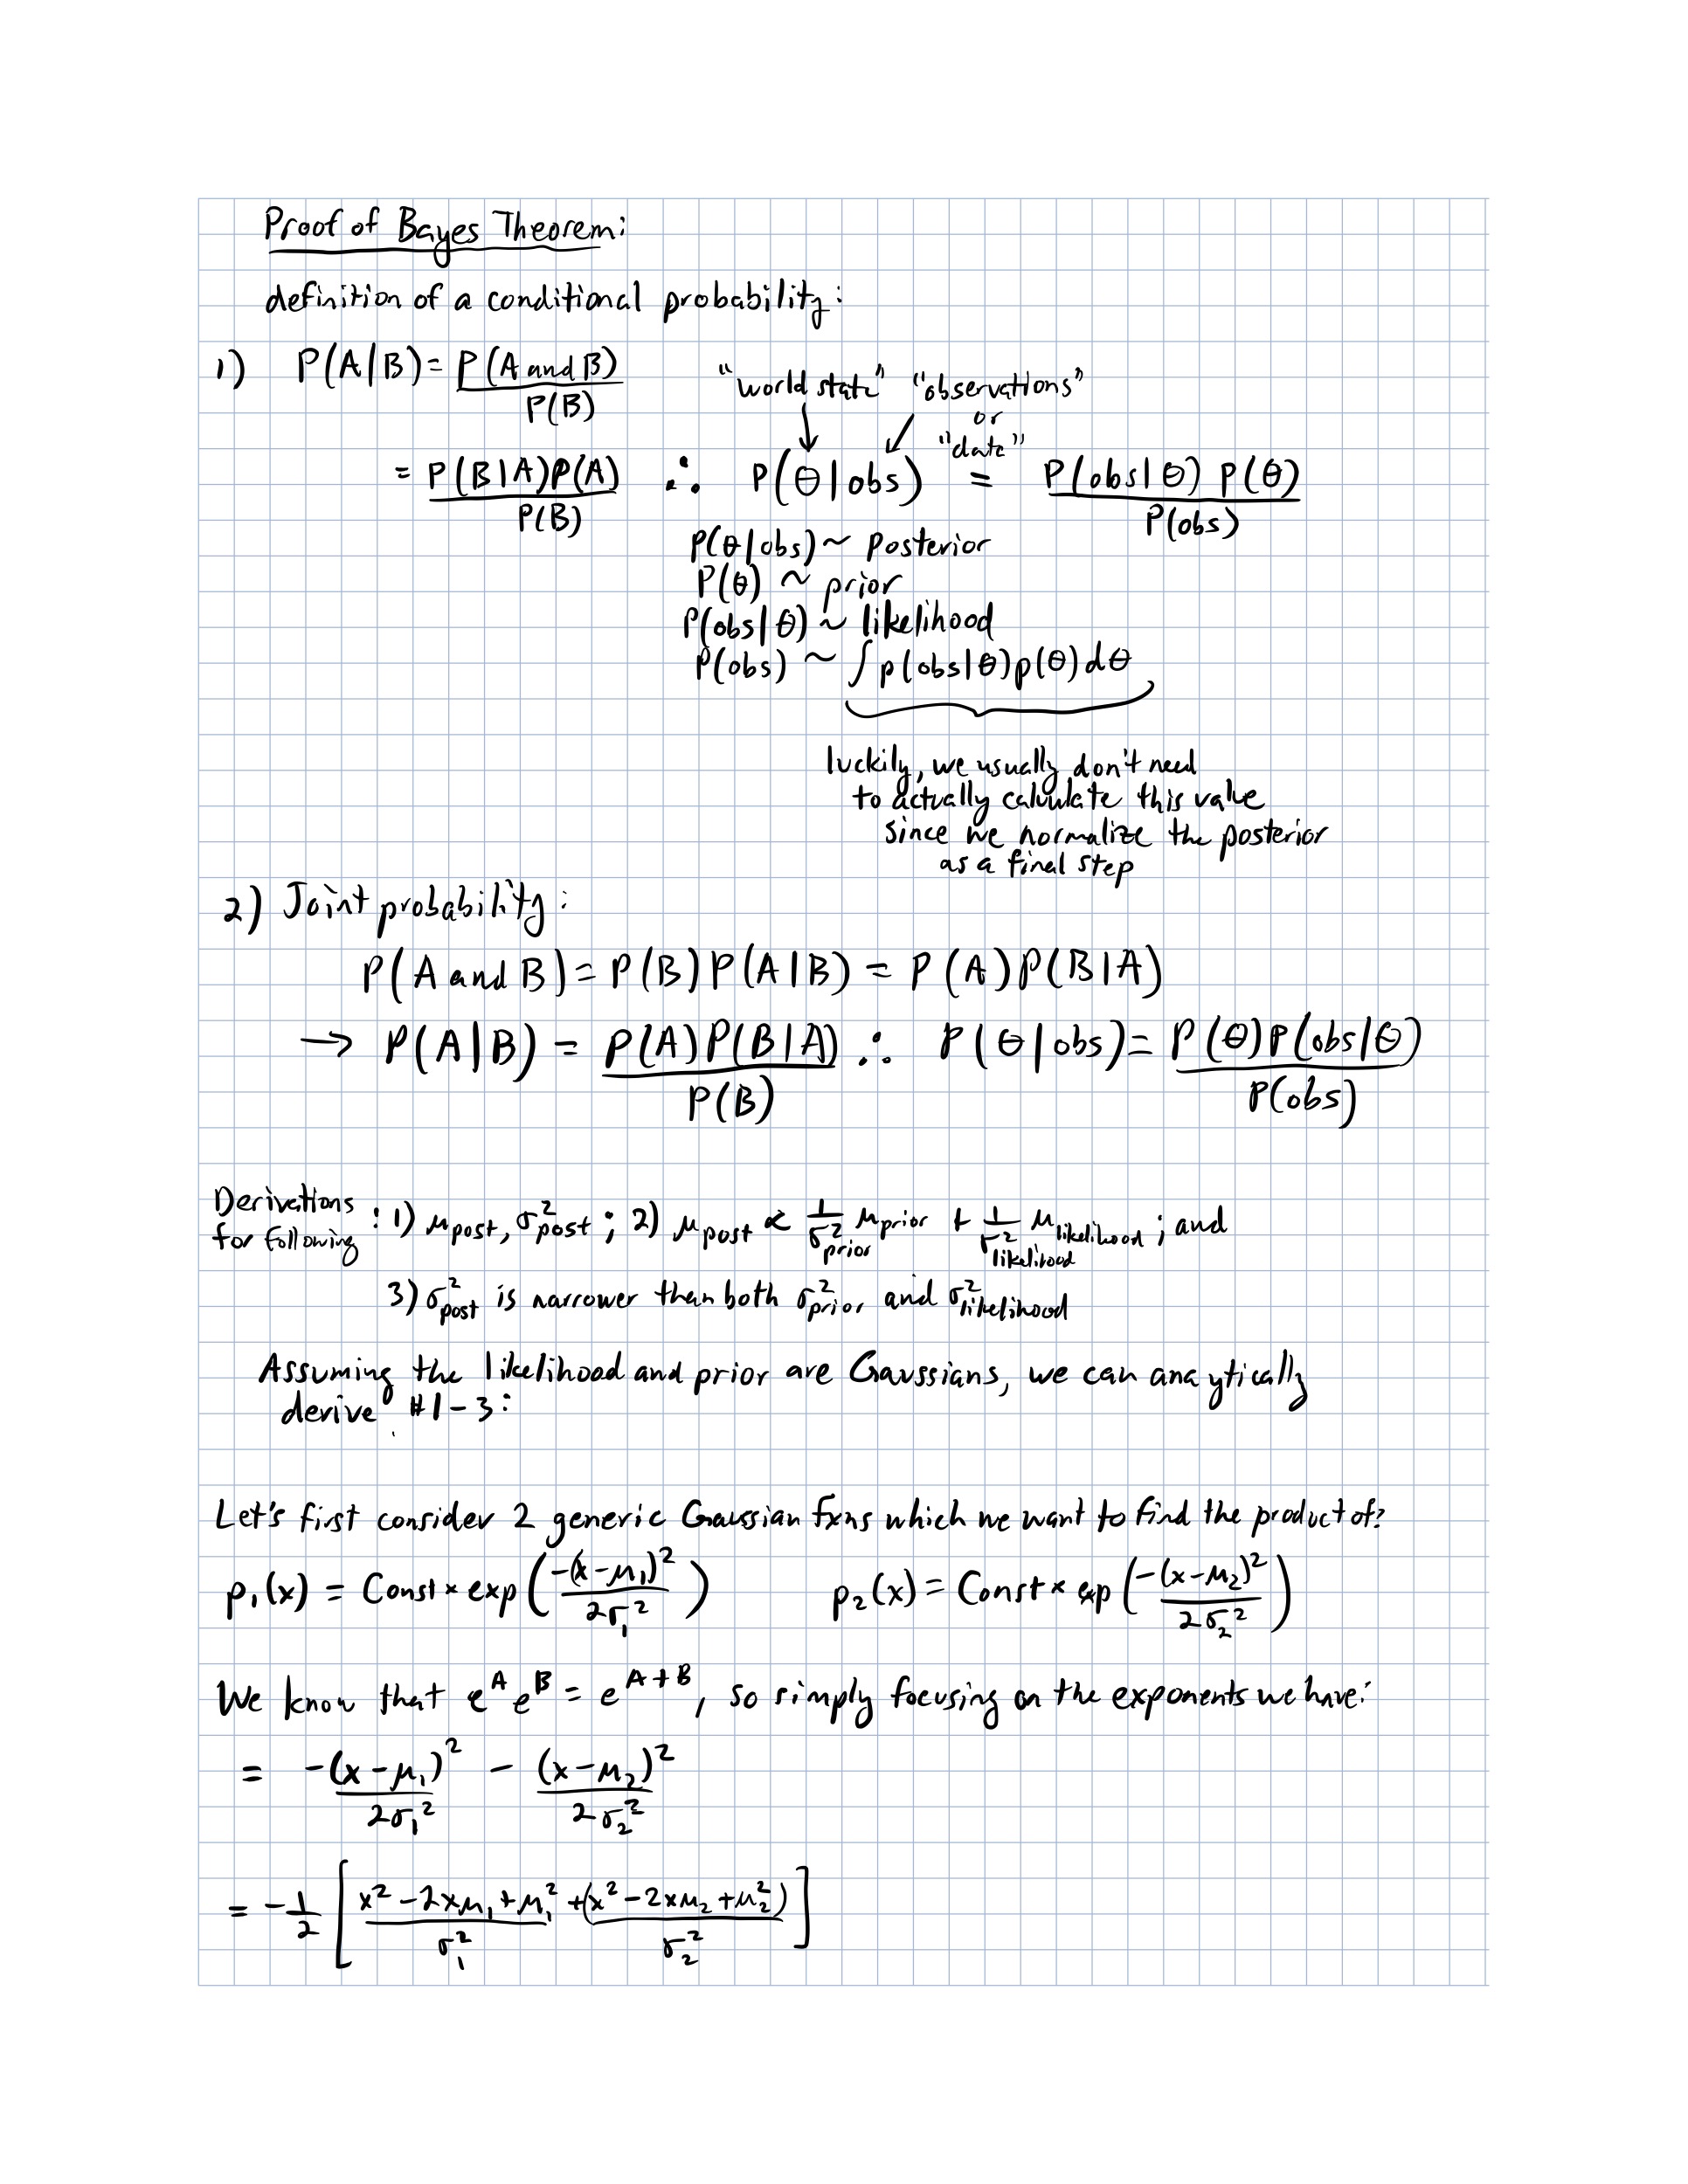 Proof of Bayes Theorem:
definition of a conditional probability:
1) P(A|B) = P(A and B) / P(B)
"world state" "observations"
or
"data"
= P(B|A)P(A) / P(B) ∴ P(θ|obs) = P(obs|θ) P(θ) / P(obs)
P(θ|obs) ~ Posterior
P(θ) ~ prior
P(obs|θ) ~ likelihood
P(obs) ~ ∫ p(obs|θ)p(θ)dθ
luckily, we usually don't need
to actually calculate this value
since we normalize the posterior
as a final step
2) Joint probability:
P(A and B) = P(B)P(A|B) = P(A)P(B|A)
→ P(A|B) = P(A)P(B|A) / P(B) ∴ P(θ|obs) = P(θ)P(obs|θ) / P(obs)
Derivations for following : 1) μpost, σ²post ; 2) μpost ∝ 1/σ²prior μprior + 1/σ²likelihood μlikelihood ; and
3) σ²post is narrower than both σ²prior and σ²likelihood
Assuming the likelihood and prior are Gaussians, we can anaytically
derive #1-3:
Let's first consider 2 generic Gaussian fxns which we want to find the product of:
p₁(x) = Const × exp(-(x-μ₁)² / 2σ₁²) p₂(x) = Const × exp(-(x-μ₂)² / 2σ₂²)
We know that e^A e^B = e^(A+B), so simply focusing on the exponents we have:
= -(x-μ₁)² / 2σ₁² - (x-μ₂)² / 2σ₂²
= -1/2 [ x² - 2xμ₁ + μ₁² / σ₁² + (x² - 2xμ₂ + μ₂²) / σ₂² ]